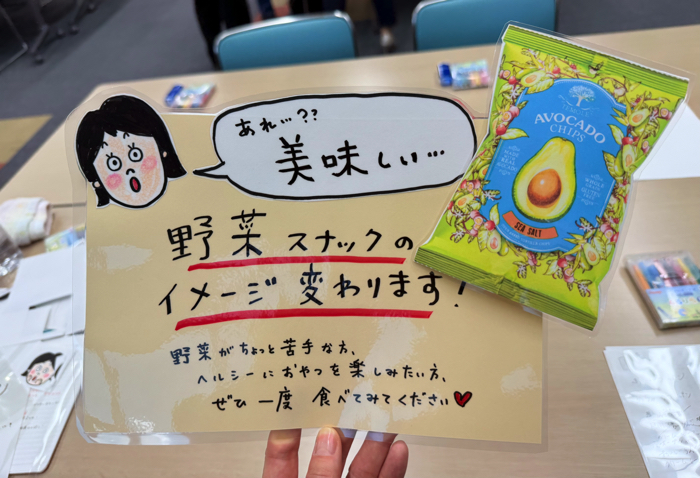 あれ…??
美味しい…
野菜スナックの
イメージ変わります!
野菜がちょっと苦手な方、
ヘルシーにおやつを楽しみたい方、
ぜひ一度 食べてみてください♥
AVOCADO
CHIPS
SEA SALT